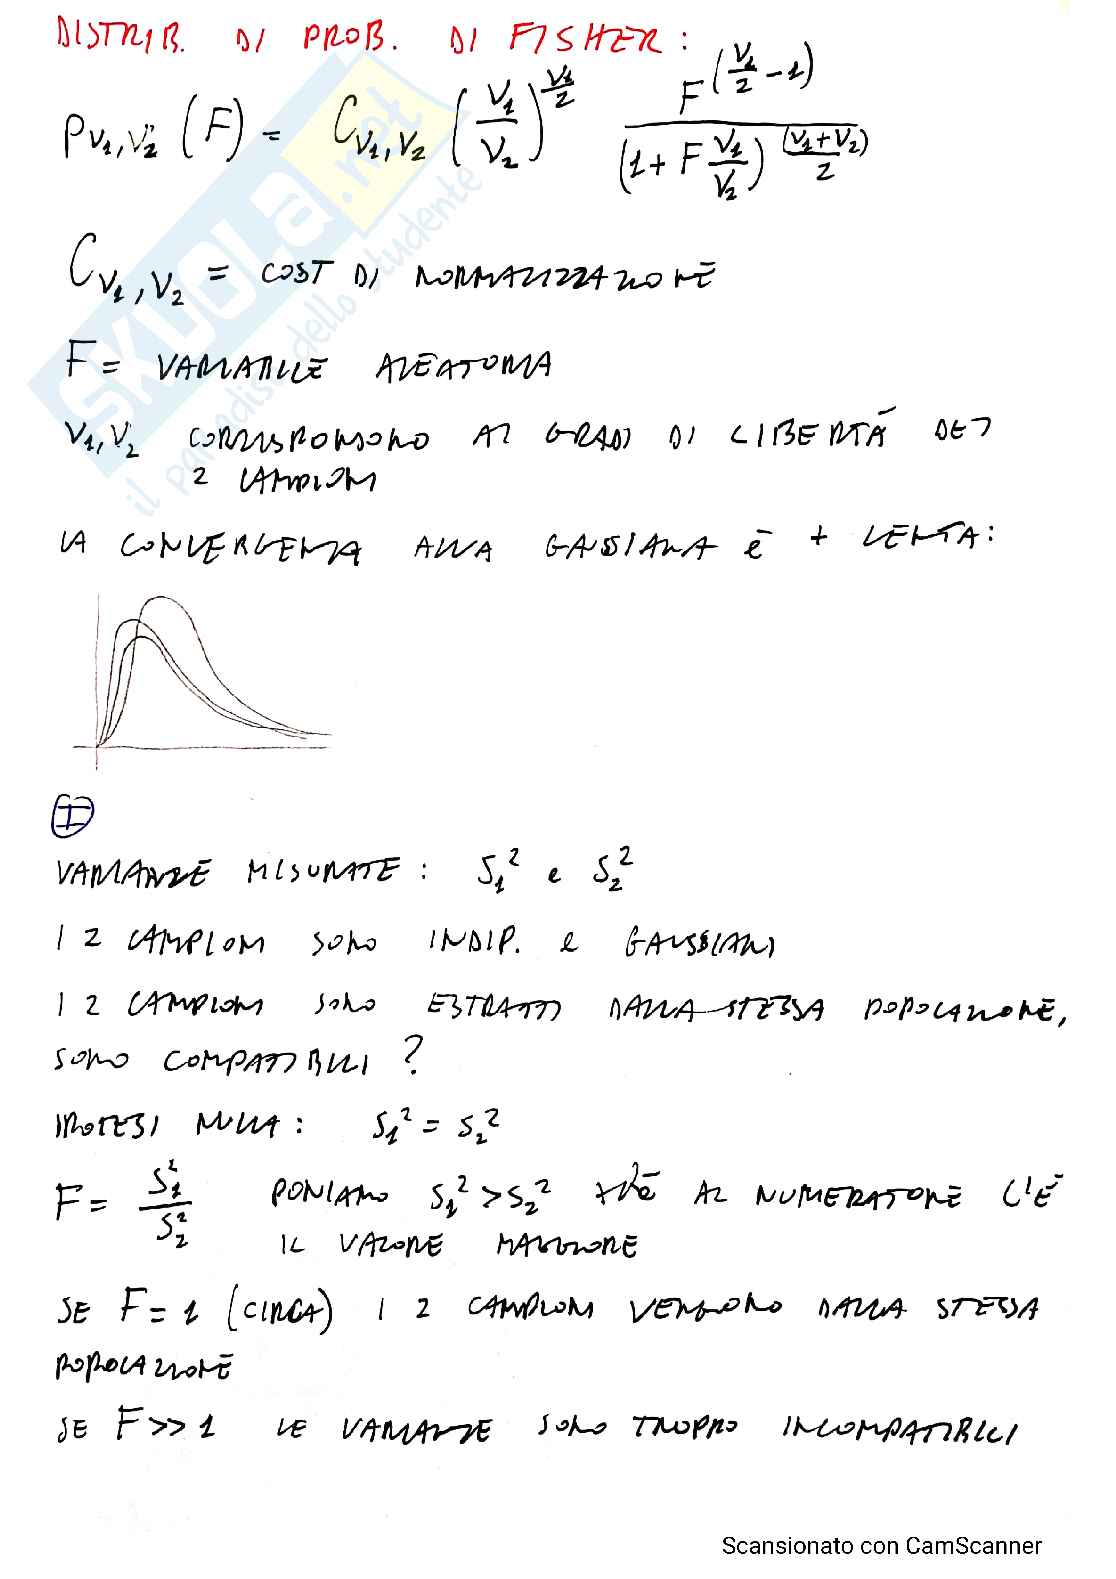 DISTRIB. DI PROB. DI FISHER:
P_{ν1,ν2}(F) = C_{ν1,ν2} (ν1/ν2)^{ν1/2} F^{(ν1/2 - 1)} / (1 + F ν1/ν2)^{(ν1+ν2)/2}
C_{ν1,ν2} = COST DI NORMALIZZAZIONE
F = VARIABILE ALEATORIA
ν1, ν2 CORRISPONDONO AI GRADI DI LIBERTÀ DEI
2 CAMPIONI
LA CONVERGENZA ALLA GAUSSIANA È + LENTA:
I
VARIANZE MISURATE: S1² e S2²
I 2 CAMPIONI SONO INDIP. e GAUSSIANI
I 2 CAMPIONI SONO ESTRATTI DALLA STESSA POPOLAZIONE,
SONO COMPATIBILI?
IPOTESI NULLA: S1² = S2²
F = S1²/S2² PONIAMO S1² > S2² xké AL NUMERATORE C'È
IL VALORE MAGGIORE
SE F = 1 (CIRCA) I 2 CAMPIONI VENGONO DALLA STESSA
POPOLAZIONE
SE F >> 1 LE VARIANZE SONO TROPPO INCOMPATIBILI
SKUOLA.net
il paradiso dello studente
Scansionato con CamScanner